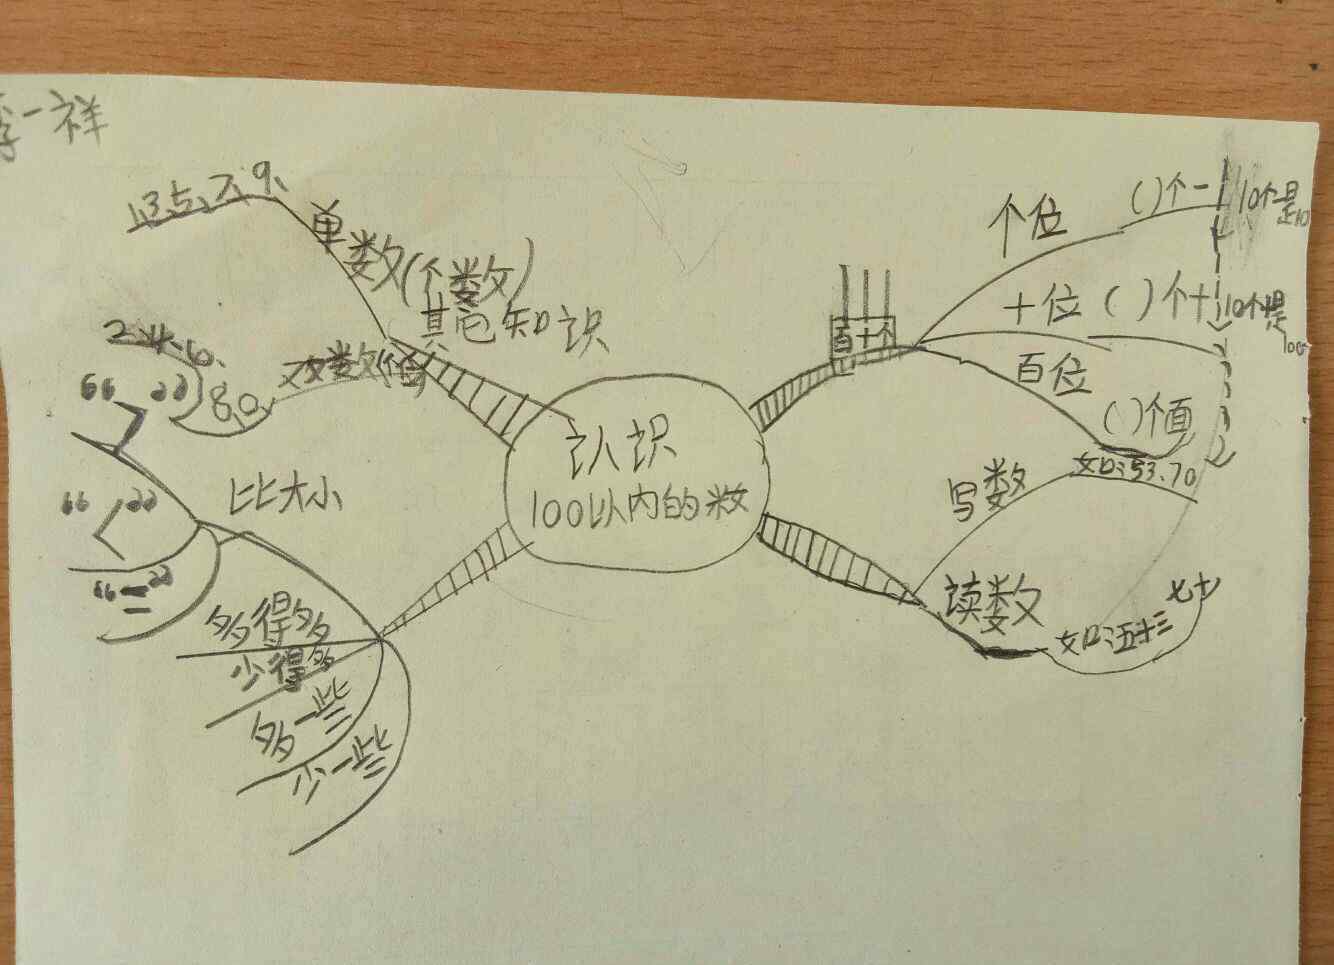 李一祥
1、3、5、7、9、
单数(个数)
其它知识
2、4、6、
8、0
双数(个位)
认识
100以内的数
“>”
“<”
“=”
比大小
多得多
少得多
多一些
少一些
百十个
个位
( )个一
10个一是10
十位
( )个十
10个十是100
百位
( )个百
写数
如:53、70
读数
如:五十三
七十